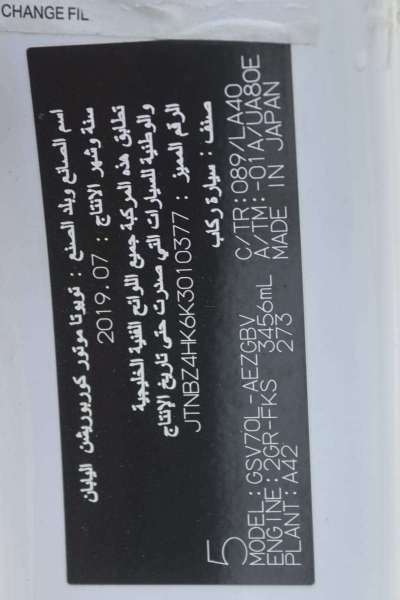 CHANGE FIL
اسم الصانع وبلد الصنع : تويوتا موتور كوربوريشن اليابان
سنة وشهر الإنتاج : 2019.07
تطابق هذه المركبة جميع اللوائح الفنية الخليجية
والوطنية للسيارات التي صدرت حتى تاريخ الإنتاج
الرقم المميز : JTNBZ4HK6K3010377
صنف : سيارة ركاب
5
MODEL:GSV70L-AEZGBV C/TR:089/LA40
ENGINE:2GR-FKS 3456mL A/TM:-01A/UA80E
PLANT:A42 273 MADE IN JAPAN